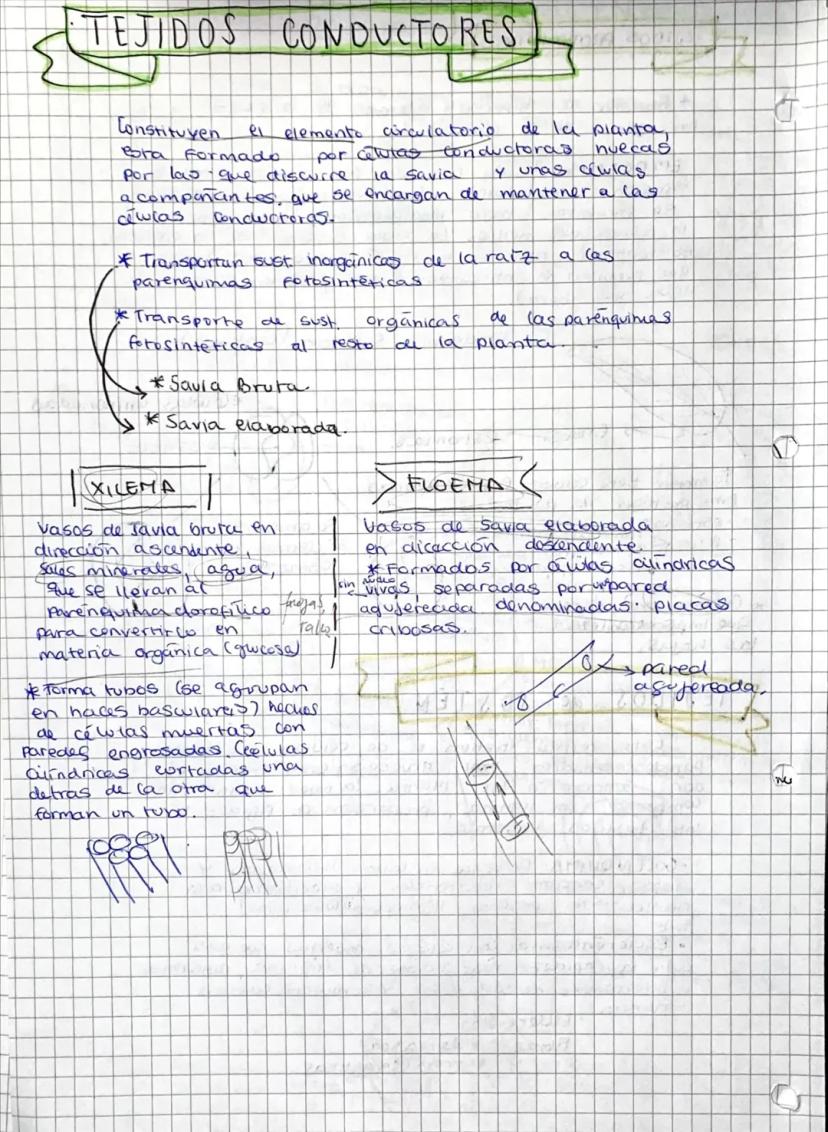 TEJIDOS CONDUCTORES
Constituyen el elemento circulatorio de la planta,
esta formado por células conductoras huecas
por las que discurre la savia y unas células
acompañantes, que se encargan de mantener a las
células conductoras.
* Transportan sust. inorgánicas de la raíz a las
parenquimas fotosintéticas
* Transporte de sust. orgánicas de las parénquimas
fotosintéticas al resto de la planta.
* Savia Bruta.
* Savia elaborada.
XILEMA
Vasos de savia bruta en
dirección ascendente,
sales minerales, agua,
que se llevan al
parénquima clorofílico hojas,
tallo
para convertirlo en
materia orgánica (glucosa)
* Forma tubos (se agrupan
en haces basculares) hechos
de células muertas con
paredes engrosadas. (células
cilíndricas cortadas una
detras de la otra que
forman un tubo.
FLOEMA
Vasos de savia elaborada
en dicección descendente
* Formados por células cilíndricas
sin núcleo vivas, separadas por pared
agujerecida denominadas placas
cribosas.
pared
agujereada.